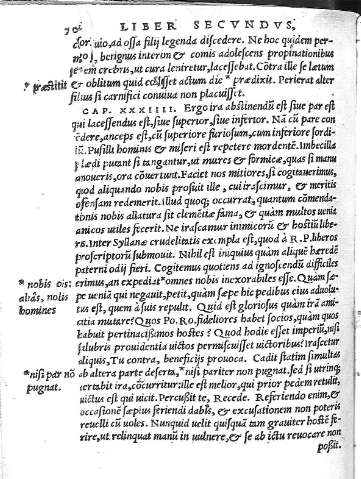 LIBER SECVNDVS.
uio, ad ossa filij legenda discedere. Ne hoc quidem per-
benignus interim & comis adolescens propinationibus
crebris, ut cura leniretur, lacessebat. Cōtra ille se lætum
* præstitit
& oblitum quid actum die * prædixit. Perierat alter
filius si carnifici conuiua non placuisset.
CAP. XXXIIII. Ergo ira abstinendũ est siue par est
qui lacessendus est, siue superior, siue inferior. Nā cũ pare con
tēdere, anceps est, cũ superiore furiosum, cum inferiore sordi
dũ. Pusilli hominis & miseri est repetere mordentē. Imbecilla
se lædi putant si tangantur, ut mures & formicæ, quas si manũ
ora cōuertunt. Faciet nos mitiores, si cogitauerimus,
quod aliquando nobis profuit ille, cui irascimur, & meritis
offensam redemerit. Illud quoq; occurrat, quantum cōmenda-
tionis nobis allatura sit clemētiæ fama, & quàm multos uenia
amicos utiles fecerit. Ne irascamur inimicorũ & hostiũ libe-
ris. Inter Syllanæ crudelitatis exempla est, quod à R.P. liberos
proscriptorũ submouit. Nihil est iniquius quàm aliquē hæredē
paterni odij fieri. Cogitemus quotiens ad ignoscendũ difficiles
* nobis ois:
erimus, an expediat * omnes nobis inexorabiles esse. Quàm sæ-
aliâs, nobis
pe ueniā qui negauit, petit, quàm sæpe hic pedibus eius aduolu-
homines
tus est, quem à suis repulit. Quid est gloriosius quàm irā ami-
citia mutare? Quos Po. Ro. fideliores habet socios, quàm quos
habuit pertinacissimos hostes? Quod hodie esset imperiũ, nisi
salubris prouidentia uictos permiscuisset uictoribus? Irascetur
aliquis, Tu contra, beneficijs prouoca. Cadit statim simultas
* nisi par nō
ab altera parte deserta, * nisi pariter non pugnat. sed si utrinq;
pugnat.
certabit ira, cōcurritur: ille est melior, qui prior pedem retulit,
uictus est qui uicit. Percussit te, Recede. Referiendo enim, &
occasionē sæpius feriendi dabis, & excusationem non poteris
reuelli cũ uoles. Nunquid uelit quisquā tam grauiter hostē fe-
rire, ut relinquat manũ in uulnere, & se ab ictu reuocare non
possit.